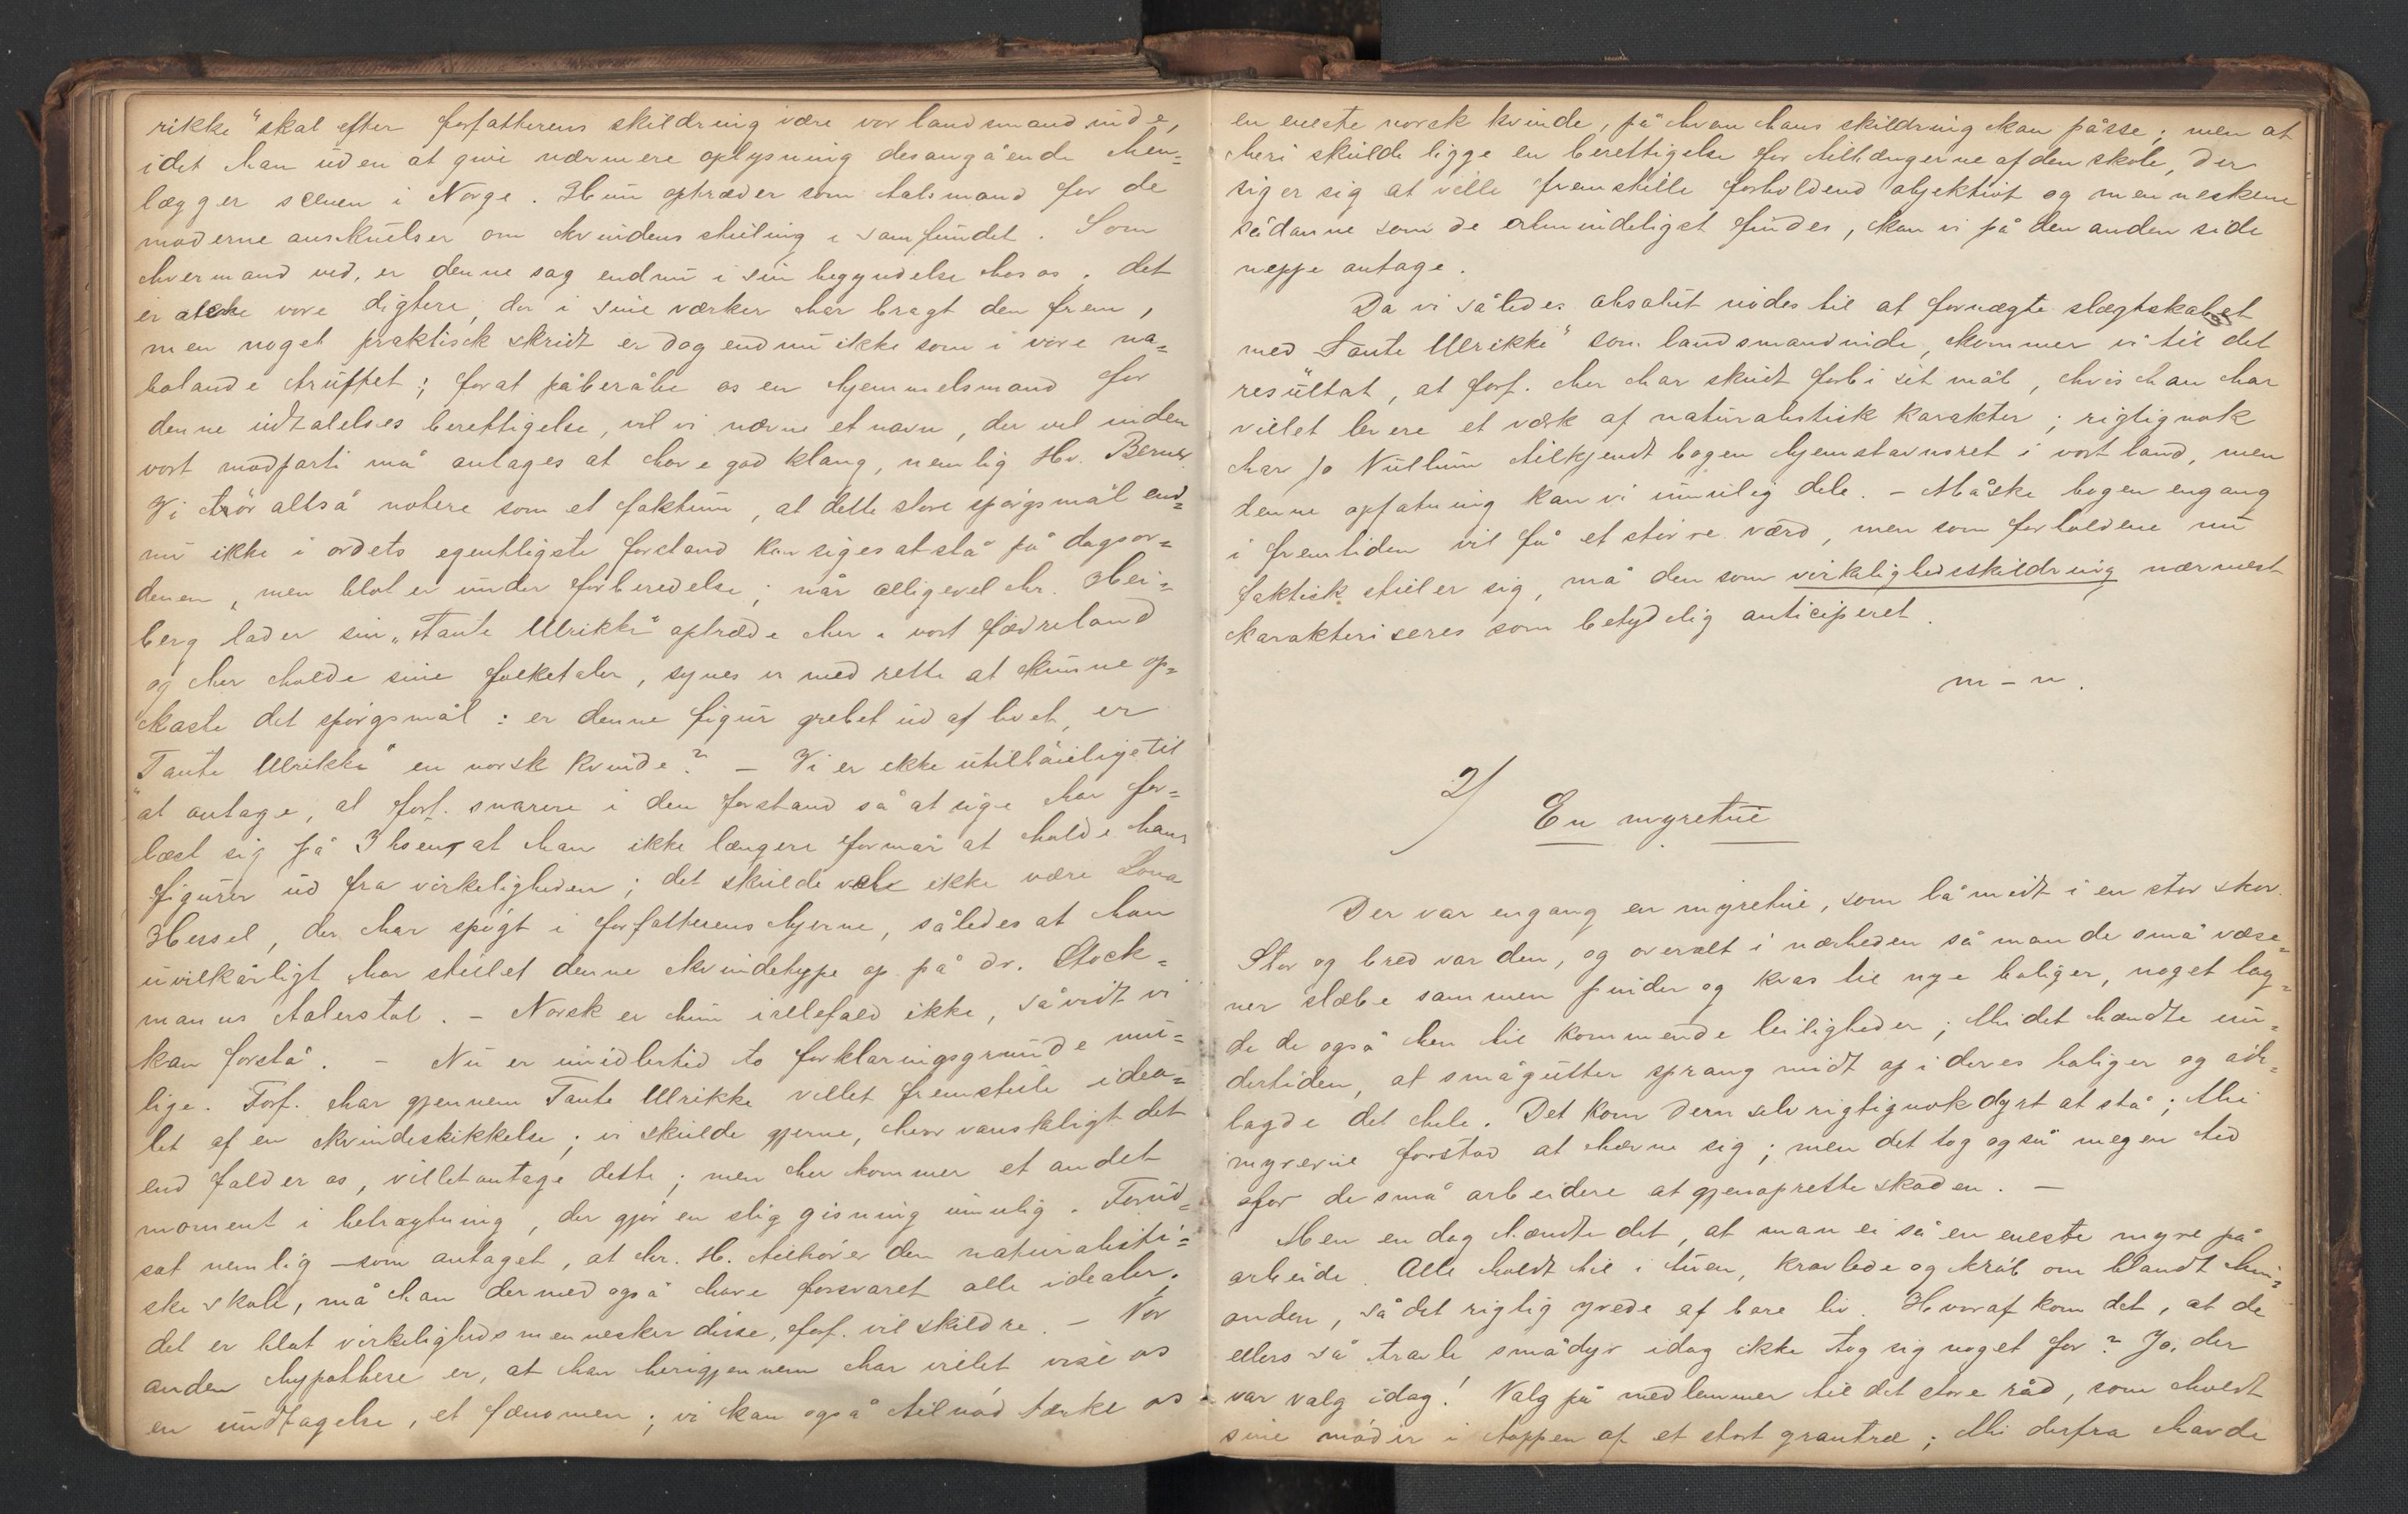 rikke" skal efter forfatterens skildring være vor landsmandinde,
idet han uden at give nærmere oplysning desangående hen=
lægger scenen i Norge. Hun optræder som talsmand for de
moderne anskuelser om kvindens stilling i samfundet. Som
hvermand ved, er denne sag endnu i sin begyndelse hos os. det
er atske vore digtere, der i sine værker har bragt den frem,
men noget praktisk skridt er dog endnu ikke som i vore na=
bolande truffet; for at påberåbe os en hjemmelsmand for
denne udtalelses berettigelse, vil vi nævne et navn, der vel inden
vort modparti må antages at have god klang, nemlig Hr. Berner
Vi tør altså notere som et faktum, at dette store spørgsmål end=
nu ikke i ordets egentligste forstand kan siges at stå på dagsor=
denen, men blot er under forberedelse; når alligevel hr. Hei=
berg lader sin „Tante Ulrikke" optræde her i vort fædreland
og her holde sine folketaler, synes vi med rette at kunne op=
kaste det spørgsmål: er denne figur grebet ud af livet, er
"Tante Ulrikke" en norsk kvinde? – Vi er ikke utilbøielige til
at antage, at forf. snarere i den forstand så at sige har for=
læst sig på Ibsen, at han ikke længere formår at holde hans
figurer ud fra virkeligheden; det skulde vel ikke være Lona
Hessel, der har spøgt i forfatterens hjerne, således at han
uvilkårligt har stillet denne kvindetype op på dr. Stock=
manns talerstol. – Norsk er hun iallefald ikke, såvidt vi
kan forstå. – Nu er imidlertid to forklaringsgrunde mu=
lige. Forf. har gjennem Tante Ulrikke villet fremstille idea=
let af en kvindeskikkelse; vi skulde gjerne, hvor vanskligt det
end falder os, villet antage dette; men her kommer et andet
moment i betragtning, der gjør en slig gisning umulig. Forud=
sat nemlig – som antaget, at hr. H. tilhører den naturalisti=
ske skole, må han dermed også have forsvaret alle idealer;
det er blot virkelighedsmennesker disse, forf. vil skildre. – Vor
anden hypothese er, at han herigjennem har villet vise os
en undtagelse, et fænomen; vi kan også tilnød tænke os
en eneste norsk kvinde, på hvem hans skildring kan passe; men at
heri skulde ligge en berettigelse for tilhængerne af den skole, der
siger sig at ville fremstille forholdene objektivt og menneskene
sådanne som de almindeligst findes, kan vi på den anden side
neppe antage.
Da vi således absolut nødes til at fornægte slægtskabet
med "Tante Ulrikke" som landsmandinde, kommer vi til det
resultat, at forf. her har skudt forbi sit mål, hvis han har
villet levere et værk af naturalistisk karakter; rigtignok
har jo Nullum tilkjendt bogen hjemstavnsret i vort land, men
denne opfatning kan vi umulig dele. – Måske bogen engang
i fremtiden vil få et større værd, men som forholdene nu
faktisk stiller sig, må den som virkelighedsskildring nærmest
karakteriseres som betydelig anticiperet.
m – n.
2/
En myretue
Der var engang en myretue, som lå midt i en stor skov.
Stor og bred var den, og overalt i nærheden så man de små væse=
ner slæbe sammen pinder og kvas til nye boliger, noget lag=
de de også hen til kommende leiligheder; thi det hændte un=
dertiden, at smågutter sprang midt op i deres boliger og øde=
lagde det hele. Det kom dem selv rigtignok dyrt at stå; thi
myrerne forstod at hævne sig; men det tog også megen tid
for de små arbeidere at gjenoprette skaden. –
Men en dag hændte det, at man ei så en eneste myre på
arbeide. Alle holdt til i tuen, kravlede og krøb om blandt hin=
anden, så det rigtig yrede af bare liv. Hvoraf kom det, at de
ellers så travle smådyr idag ikke tog sig noget for? Jo, der
var valg idag! Valg på medlemmer til det store råd, som holdt
sine møder i toppen af et stort grantræ; thi derfra havde